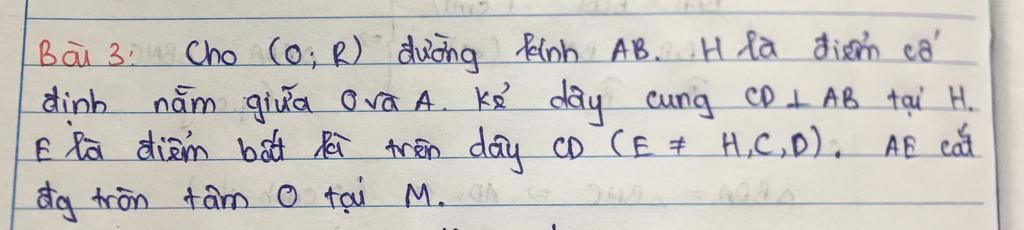 Bài 3: Cho (O; R) đường kính AB. H là điểm cố
định nằm giữa O và A. Kẻ dây cung CD ⊥ AB tại H.
E là điểm bất kì trên dây CD (E ≠ H, C, D). AE cắt
đg tròn tâm O tại M.